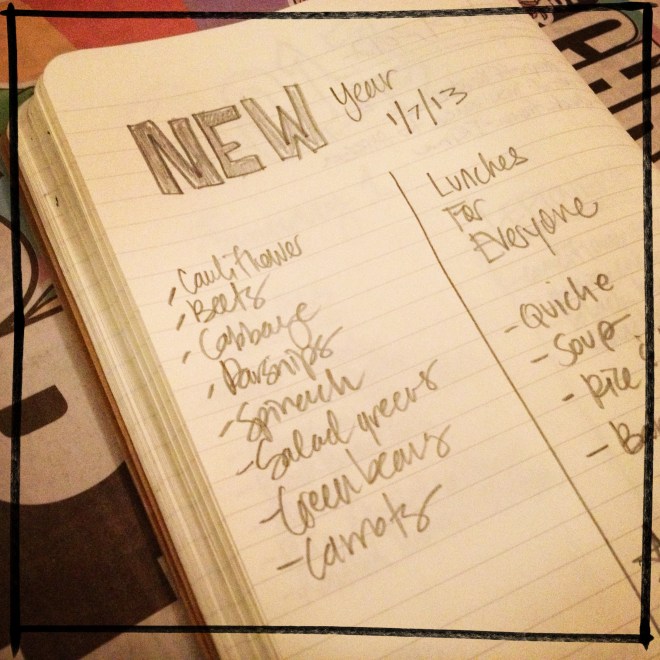 NEW Year
1/7/13
, Cauliflower
, Beets
, Cabbage
, Parsnips
- Spinach
- Salad greens
- Green beans
- Carrots
Lunches
For
Everyone
- Quiche
- Soup
-
-